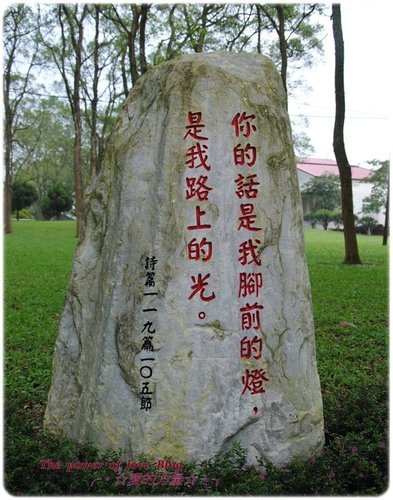 你的話是我腳前的燈，
是我路上的光。
詩篇一一九篇一〇五節
The power of love Blog